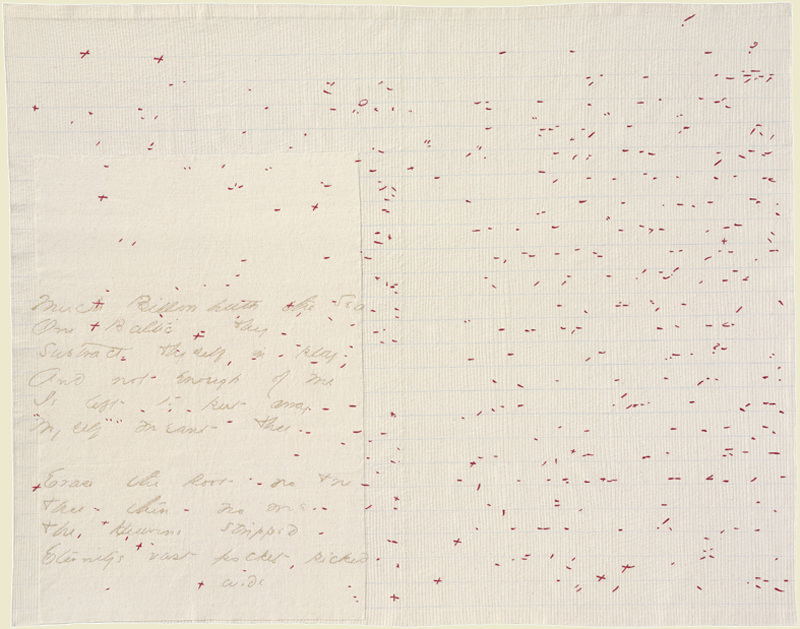 Much Billow hath the Sea
One Baltic - They
Subtract Thyself, in play,
And not enough of me
Is left - to put away -
"Myself" meant Thee -
Erase the Root - no Tree
Thee - then - no me -
The Heavens stripped -
Eternity's vast pocket, picked
wide